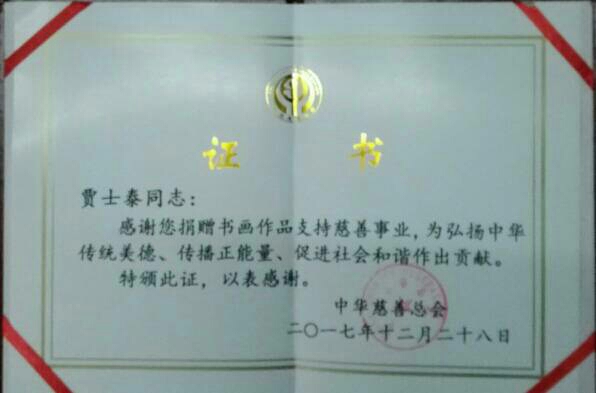 证 书
贾士泰同志：
感谢您捐赠书画作品支持慈善事业，为弘扬中华
传统美德、传播正能量、促进社会和谐作出贡献。
特颁此证，以表感谢。
中华慈善总会
二〇一七年十二月二十八日